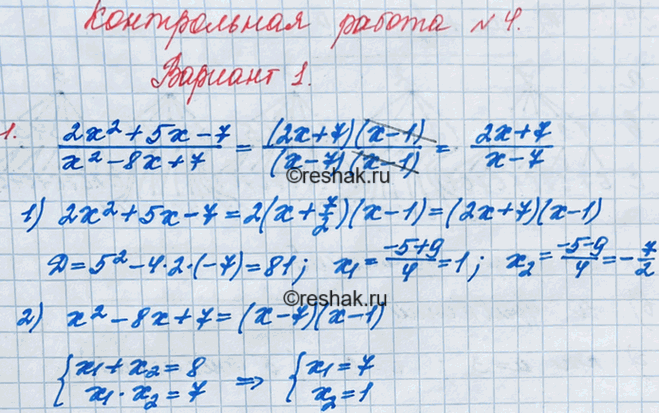 Контрольная работа №4.
Вариант 1.
1. (2x²+5x-7)/(x²-8x+7) = ((2x+7)(x-1))/((x-7)(x-1)) = (2x+7)/(x-7)
©reshak.ru
1) 2x²+5x-7=2(x+7/2)(x-1)=(2x+7)(x-1)
D=5²-4·2·(-7)=81; x₁=(-5+9)/4=1; x₂=(-5-9)/4=-7/2
©reshak.ru
2) x²-8x+7=(x-7)(x-1)
{x₁+x₂=8 ⇒ {x₁=7
x₁·x₂=7 x₂=1